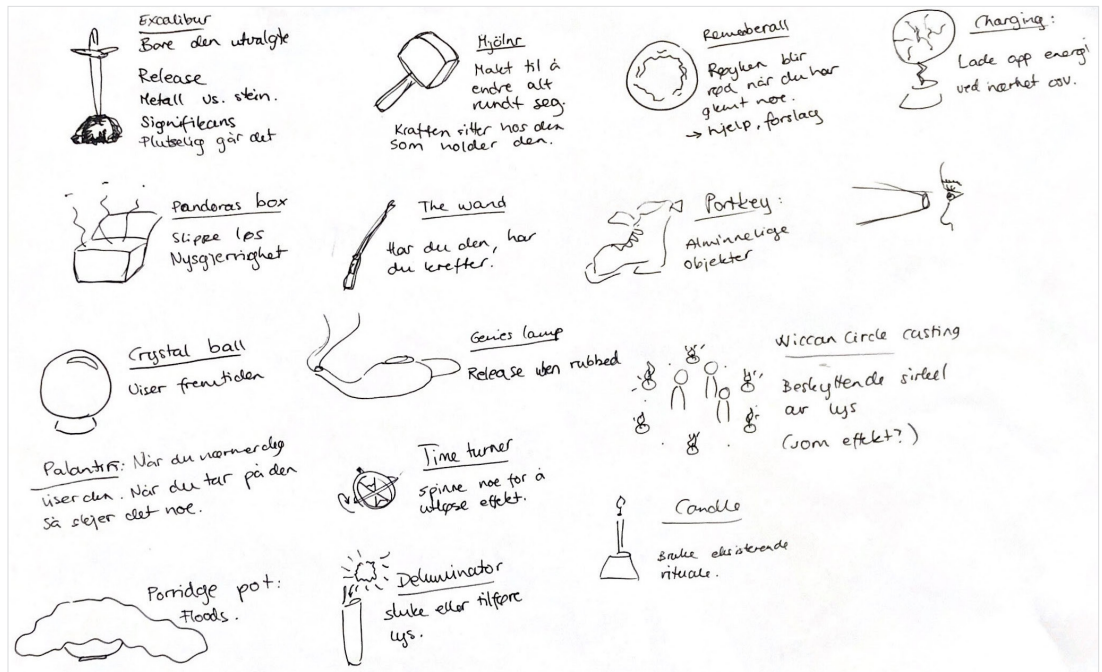 Excalibur
Bare den utvalgte
Release
Metall vs. stein.
Signifikans
Plutselig går det
Mjölnr
Makt til å
endre alt
rundt seg.
Kraften sitter hos den
som holder den.
Remeberall
Røyken blir
rød når du har
glemt noe.
→ hjelp, forslag
Charging:
Lade opp energi
ved nærhet osv.
Pandoras box
Slippe løs
Nysgjerrighet
The wand
Har du den, har
du krefter.
Portkey:
Alminnelige
objekter
Crystal ball
Viser fremtiden
Genies lamp
Release when rubbed
Wiccan Circle casting
Beskyttende sirkel
av lys
(som effekt?)
Palantir: Når du nærmer deg
viser den. Når du tar på den
så skjer det noe.
Time turner
spinne noe for å
utløse effekt.
Candle
Bruke eksisterende
rituale.
Porridge pot:
Floods.
Deluminator
sluke eller tilføre
lys.